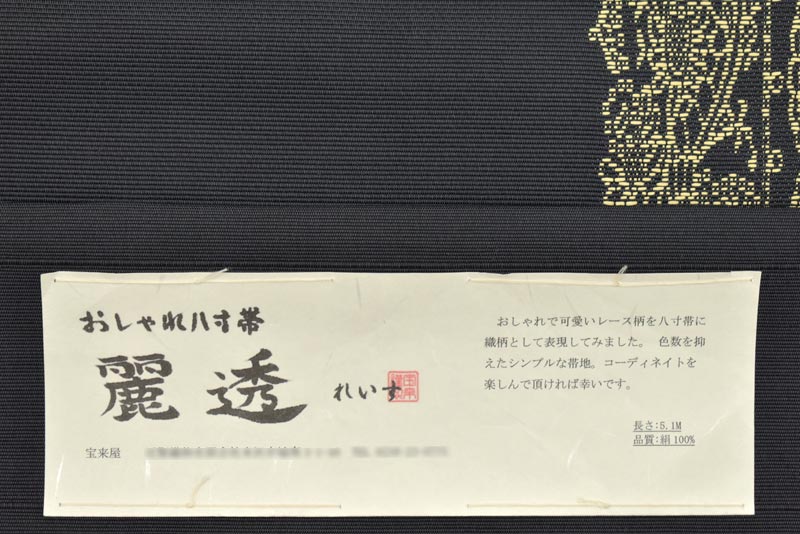 おしゃれ八寸帯
麗透 れいす
宝来屋
おしゃれで可愛いレース柄を八寸帯に
織柄として表現してみました。 色数を抑
えたシンプルな帯地。コーディネイトを
楽しんで頂ければ幸いです。
長さ:5.1M
品質:絹100%